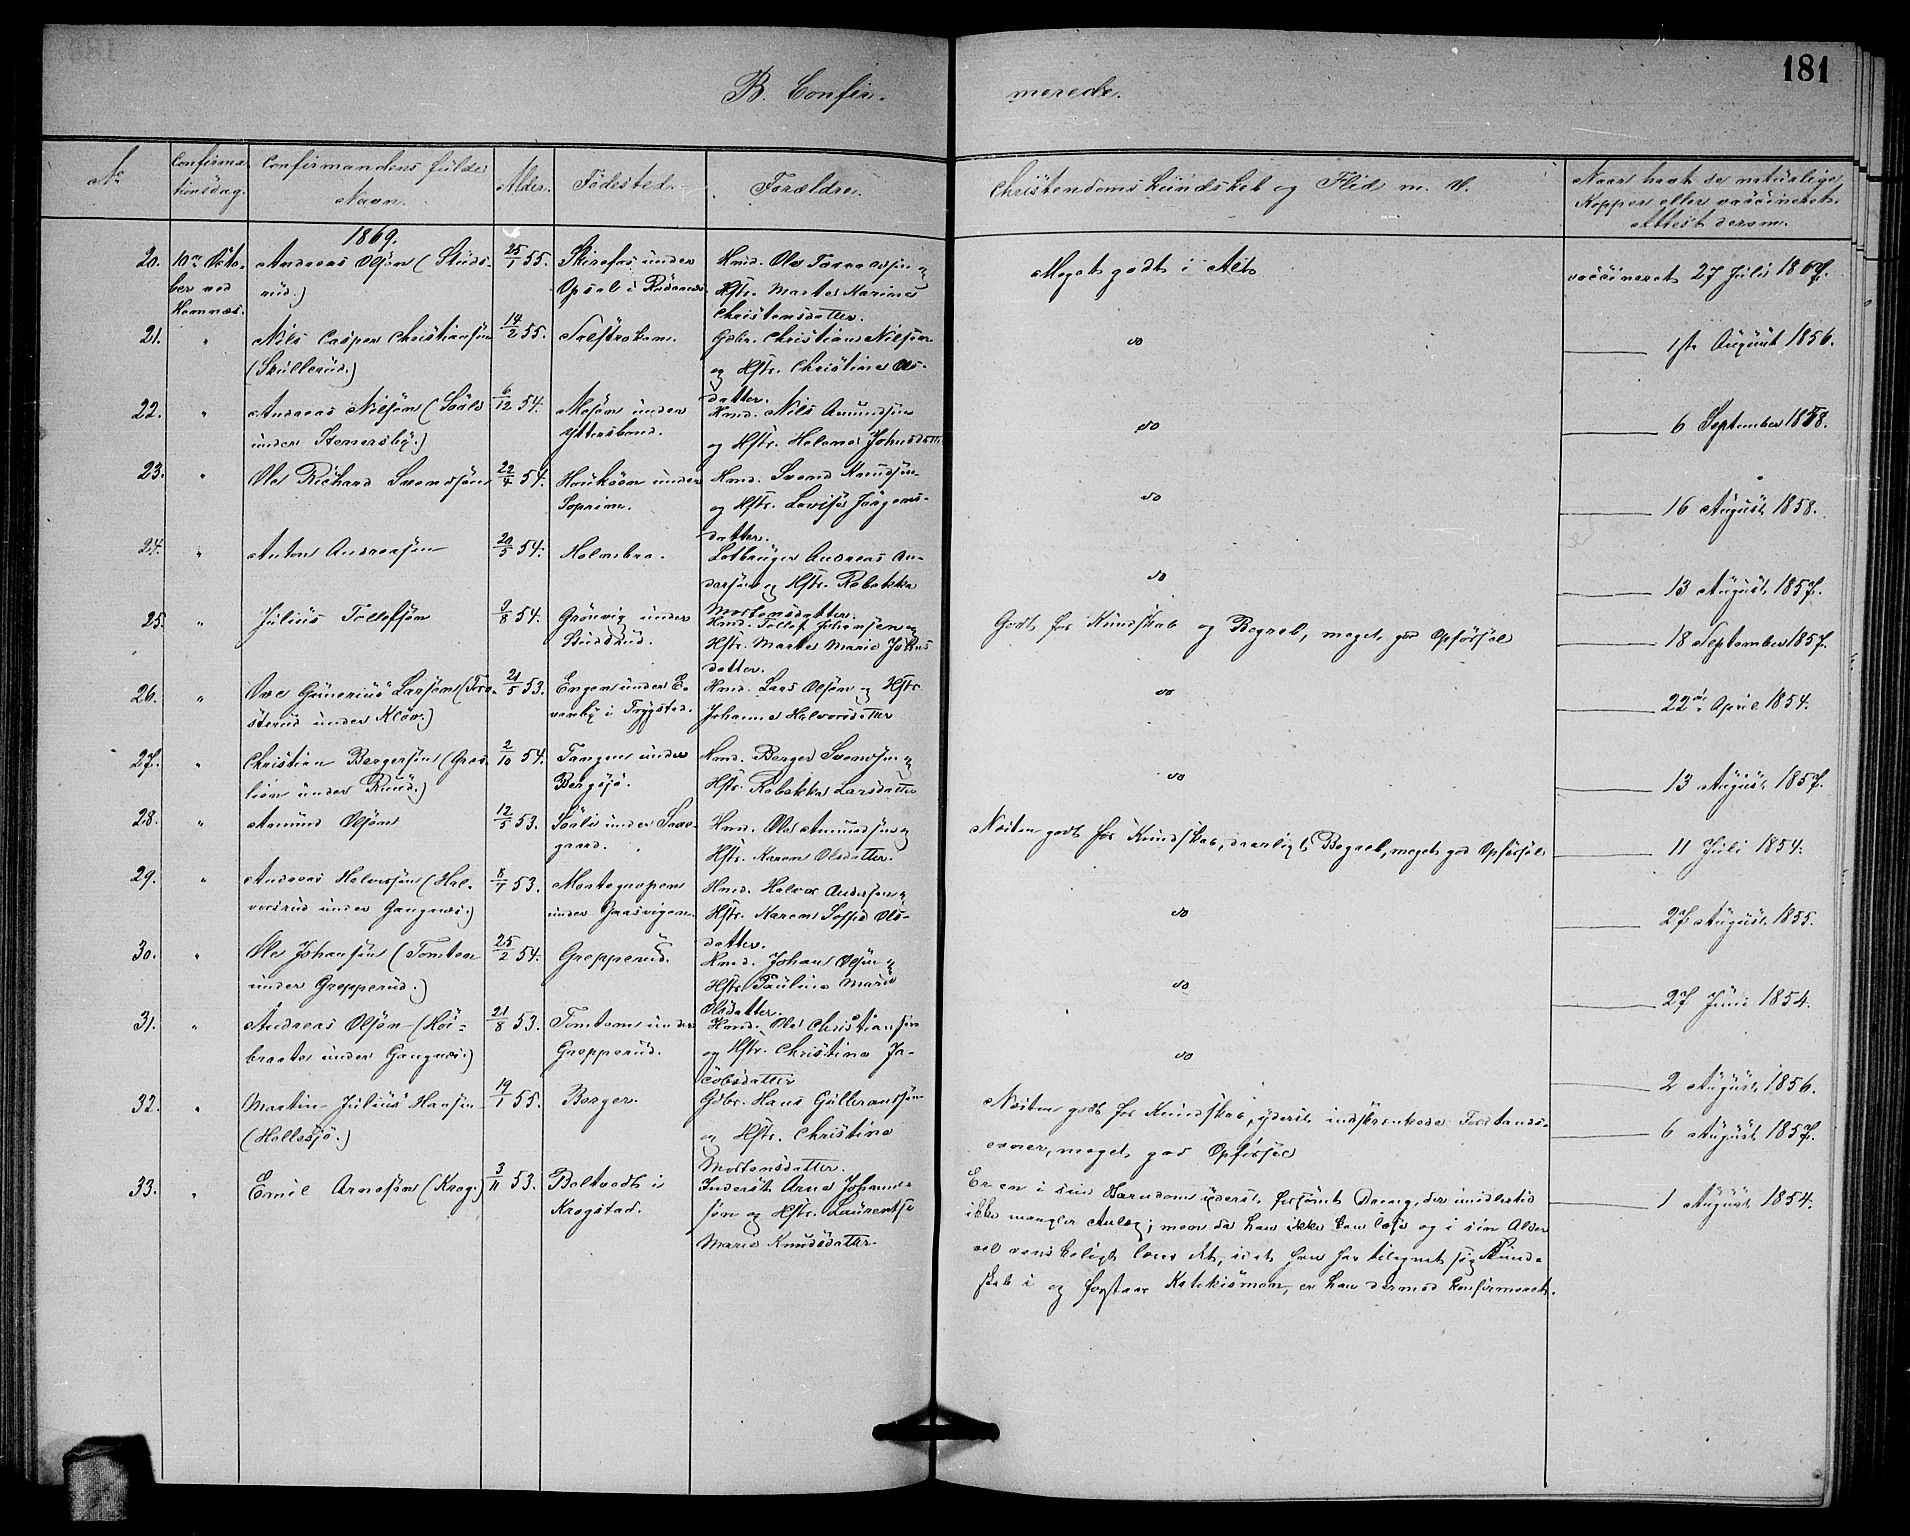 181
B. Confir-
merede.
No
Confirma-
tionsdag.
Confirmandens fulde
Navn.
Alder.
Födested.
Forældre.
Christendomskundskab og Flid m. V.
Naar havt de naturlige
Kopper eller vaccineret.
Attest derom.
1869.
20.
10de Okto-
ber ved
Hemnæs.
Andreas Olsön (Studs-
rud.)
25/1 55.
under
Opsal i Rödenæs.
Hmd. Ole
Hstr. Marte Karine
Christensdatter.
Meget godt i Alt
vaccineret 27 Juli 1867.
21.
"
Nils Casper Christiansön
(Skullerud.)
14/2 55.
Gdbr. Christian Nilsön
og Hstr. Christine Ols-
datter.
do
1ste August 1856.
22.
"
Andreas Nilsön (
under Stenersby.)
6/12 54.
Mosön under
Yttersbond.
Hmd. Nils Amundsön
og Hstr. Helene Johnsdatter
do
6 September 1858.
23.
"
Ole Richard Svendsön
22/4 54.
under
Soprim.
Hmd. Svend Knudsön
og Hstr. Lovise Jörgens-
datter.
do
16 August 1858.
24.
"
Anton Andreasön
20/5 54.
Holenbro.
Andreas An-
dersön og Hstr. Rebekka
Mortensdatter.
do
13 August 1857.
25.
"
Julius Tollefsön
9/8 54.
Grönvig under
Studsrud.
Hmd. Tollef Juliansen og
Hstr. Marte Marie Johns
datter.
Godt for Kundskab og Begreb, meget god Opförsel
18 September 1857.
26.
"
Ove Gunerius Larsön
sterud under Klöv.)
21/5 53.
Engen under E-
venby i Trygstad.
Hmd. Lars Olsön og Hstr.
Johanne Halvorsdatter
do
22de April 1854.
27.
"
Christian Bergersön (Græs-
lien under Ruud.)
2/10 54.
Tangen under
Bergsjö.
Hmd. Berger Svendsön og
Hstr. Rebekka Larsdatter
do
13 August 1857.
28.
"
Amund Olsön
12/5 53.
Söeli under
gaard.
Hmd. Ole Amundsön og
Hstr. Karen Olsdatter.
Neiten godt for Kundskab, daarligt Begreb, meget god Opförsel
11 Juli 1854.
29.
"
Andreas Halvorsön (Hal-
vorsrud under Gangnæs.)
8/7 53.
under Gaasvigen.
Hmd. Halvor Andersön og
Hstr. Karen Soffie Ols-
datter.
do
27 August 1855.
30.
"
Ole Johansön (Tomten
under Grepperud.)
25/2 54.
Grepperud.
Hmd. Johan Olsön og
Hstr. Pauline Marie
Olsdatter.
do
27 Juni 1854.
31.
"
Andreas Olsön (Höi-
braate under Gangnæs.)
21/8 53.
Tomten under
Grepperud.
Hmd. Ole Christiansön
og Hstr. Christine Ja-
cobsdatter
do
2 August 1856.
32.
"
Martin Julius Hansön
(Hellesjö.)
19/1 55.
Berger.
Gdbr. Hans Gulbrandsön
og Hstr. Christine
Mortensdatter.
Neiten godt for Kundskab, yderst indskrænkede Forstands-
evner, meget god Opförsel
6 August 1857.
33.
"
Emil Arnesön (Krog.)
3/11 53.
Boltvedt i
Krogstad.
Inderst Arne Johanne-
sön og Hstr. Laurentse
Marie Knudsdatter.
Er en i sin Barndom yderst forsömt Dreng, der imidlertid
ikke mangler Anlæg; men da han ikke kan læse og i sin Alder
vel vanskeligt lærer det, idet han har tilegnet sig Kund-
skab i og forstaar Katekismen, er han dermed konfirmeret.
1 August 1854.